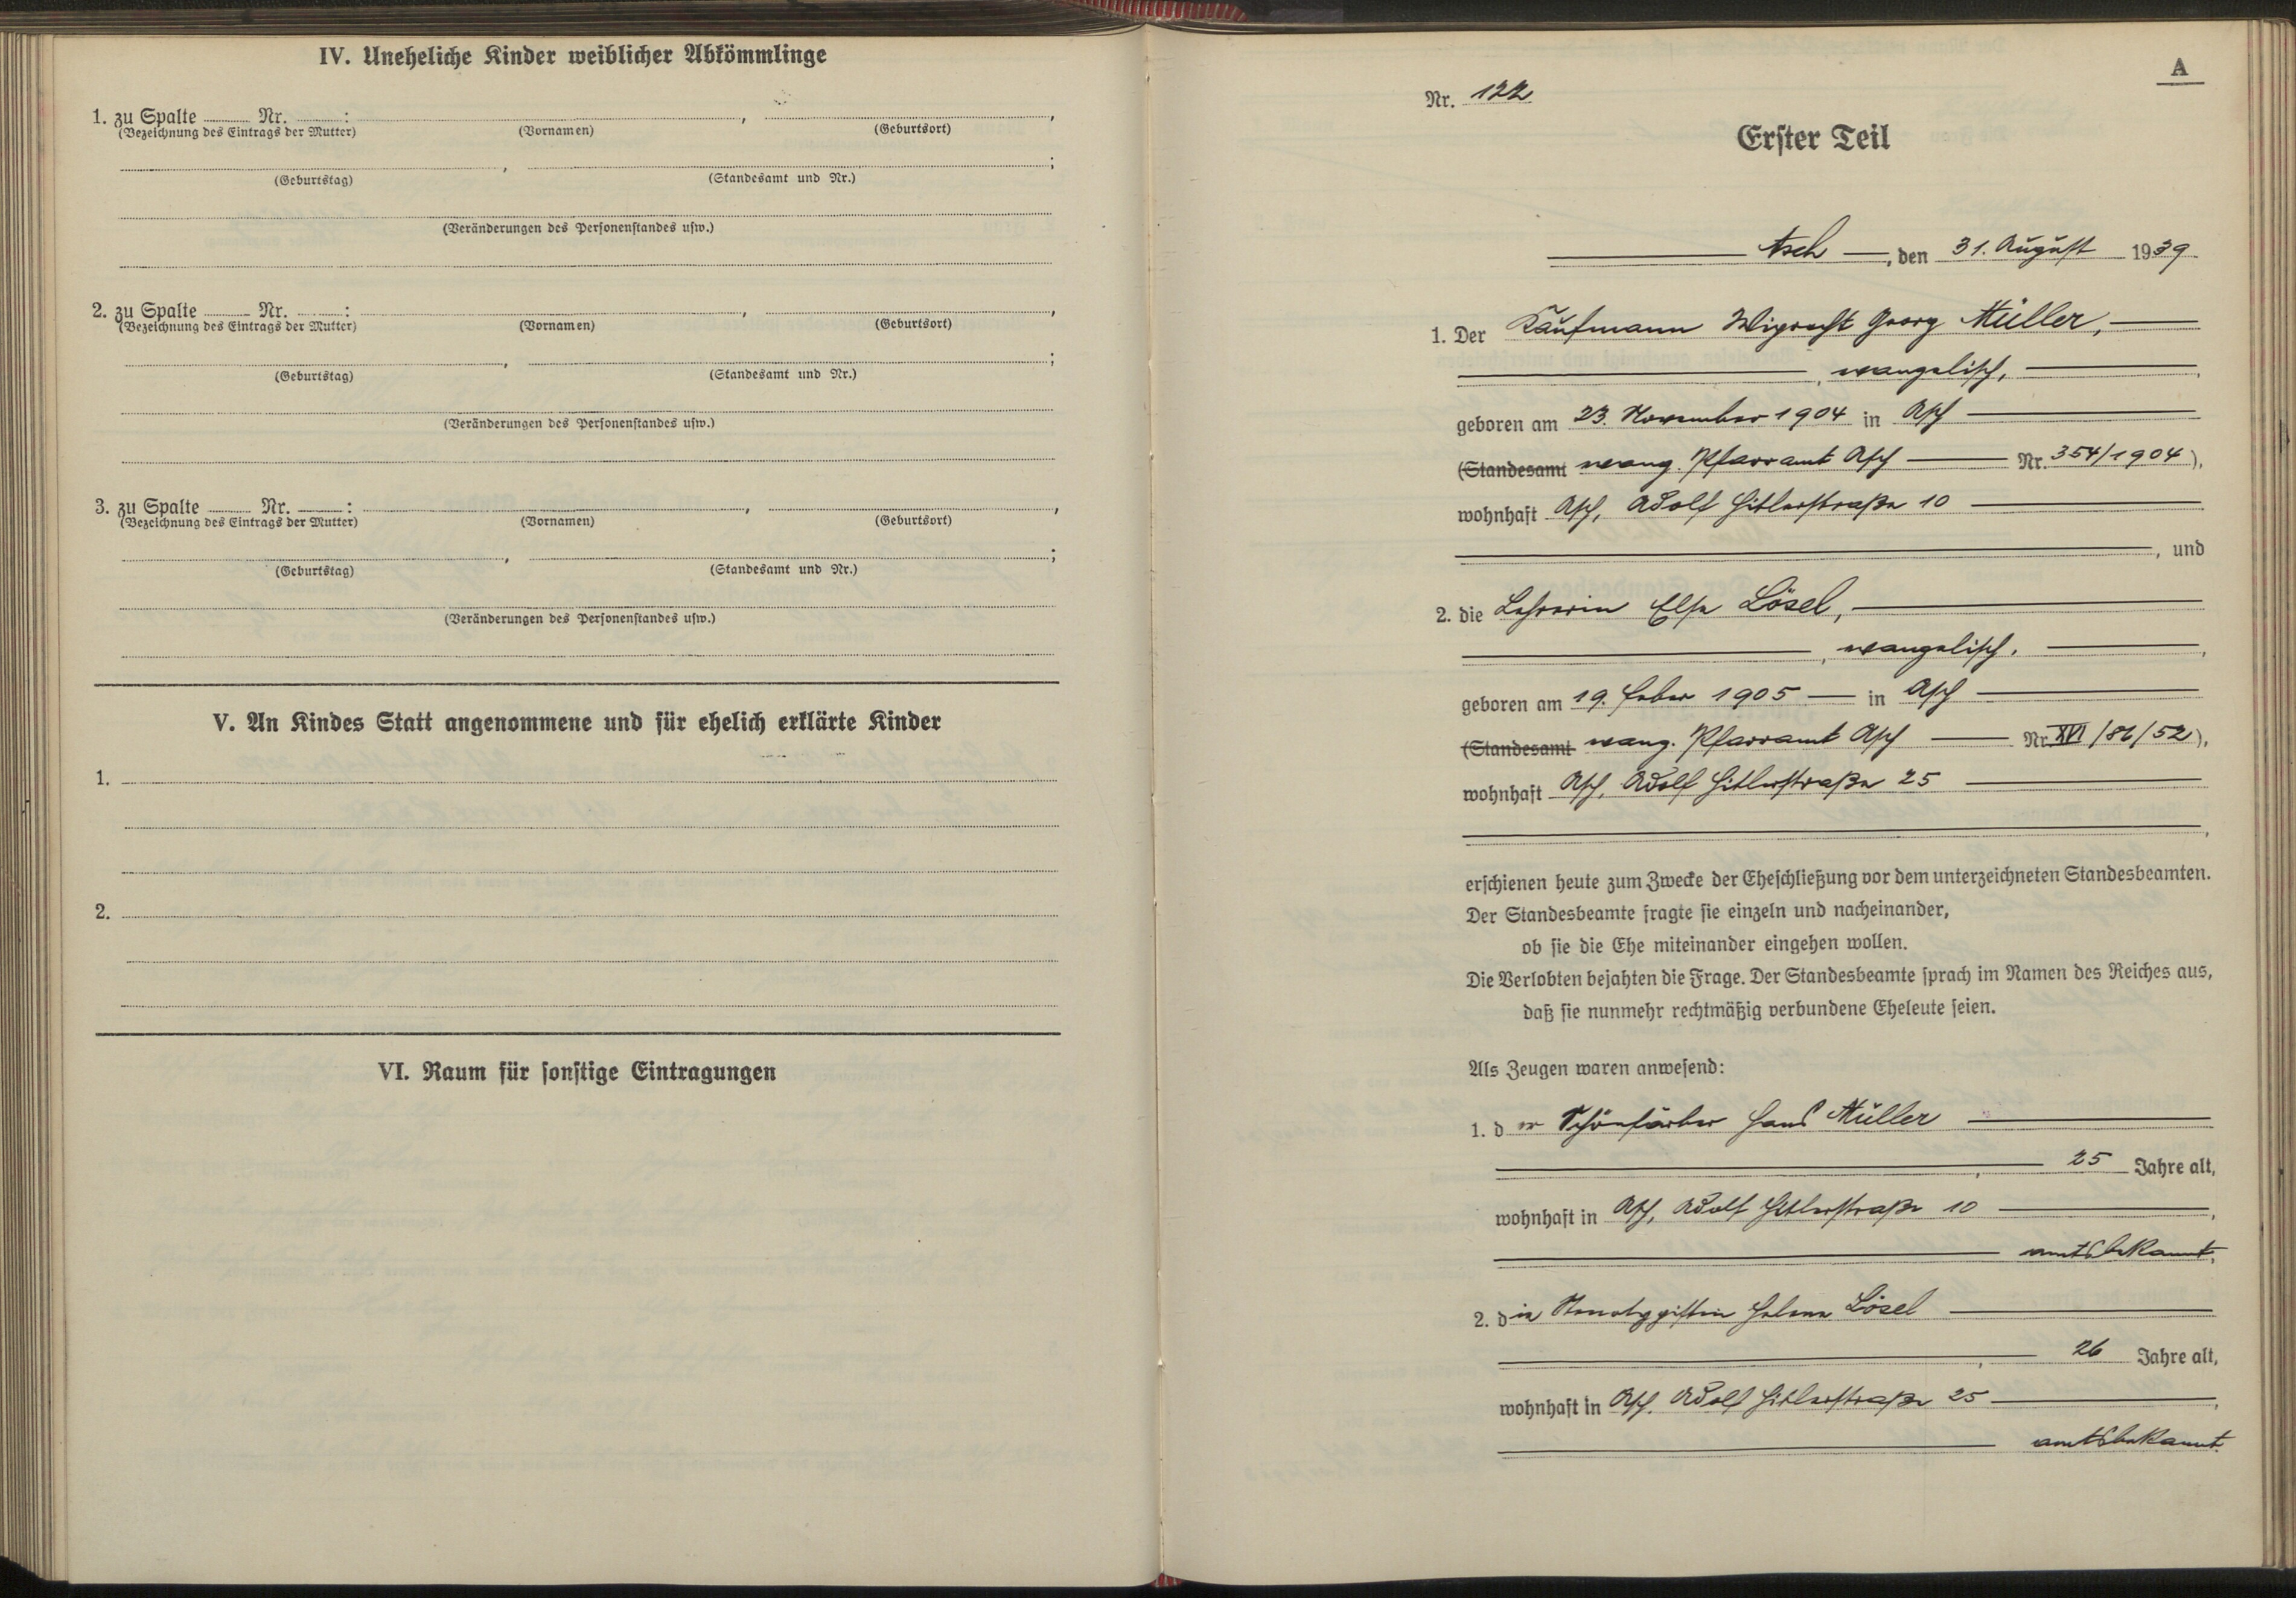 IV. Uneheliche Kinder weiblicher Abkömmlinge
1. zu Spalte ........ Nr. ........ :
(Bezeichnung des Eintrags der Mutter) (Vornamen) (Geburtsort)
(Geburtstag) (Standesamt und Nr.)
(Veränderungen des Personenstandes usw.)
2. zu Spalte ........ Nr. ........ :
(Bezeichnung des Eintrags der Mutter) (Vornamen) (Geburtsort)
(Geburtstag) (Standesamt und Nr.)
(Veränderungen des Personenstandes usw.)
3. zu Spalte ........ Nr. ........ :
(Bezeichnung des Eintrags der Mutter) (Vornamen) (Geburtsort)
(Geburtstag) (Standesamt und Nr.)
(Veränderungen des Personenstandes usw.)
V. An Kindes Statt angenommene und für ehelich erklärte Kinder
1.
2.
VI. Raum für sonstige Eintragungen
A
Nr. 122
Erster Teil
Asch, den 31. August 1939
1. Der Kaufmann Wiprecht Georg Müller,
, evangelisch,
geboren am 23. November 1904 in Asch
(Standesamt evang. Pfarramt Asch Nr. 354/1904),
wohnhaft Asch, Adolf Hitlerstraße 10
, und
2. die Lehrerin Else Lösel,
, evangelisch,
geboren am 19. Feber 1905 in Asch
(Standesamt evang. Pfarramt Asch Nr. XVI/86/52),
wohnhaft Asch, Adolf Hitlerstraße 25
erschienen heute zum Zwecke der Eheschließung vor dem unterzeichneten Standesbeamten.
Der Standesbeamte fragte sie einzeln und nacheinander,
ob sie die Ehe miteinander eingehen wollen.
Die Verlobten bejahten die Frage. Der Standesbeamte sprach im Namen des Reiches aus,
daß sie nunmehr rechtmäßig verbundene Eheleute seien.
Als Zeugen waren anwesend:
1. der Schönfärber Hans Müller
, 25 Jahre alt,
wohnhaft in Asch, Adolf Hitlerstraße 10
amtsbekannt,
2. die Helene Lösel
, 26 Jahre alt,
wohnhaft in Asch, Adolf Hitlerstraße 25
amtsbekannt.